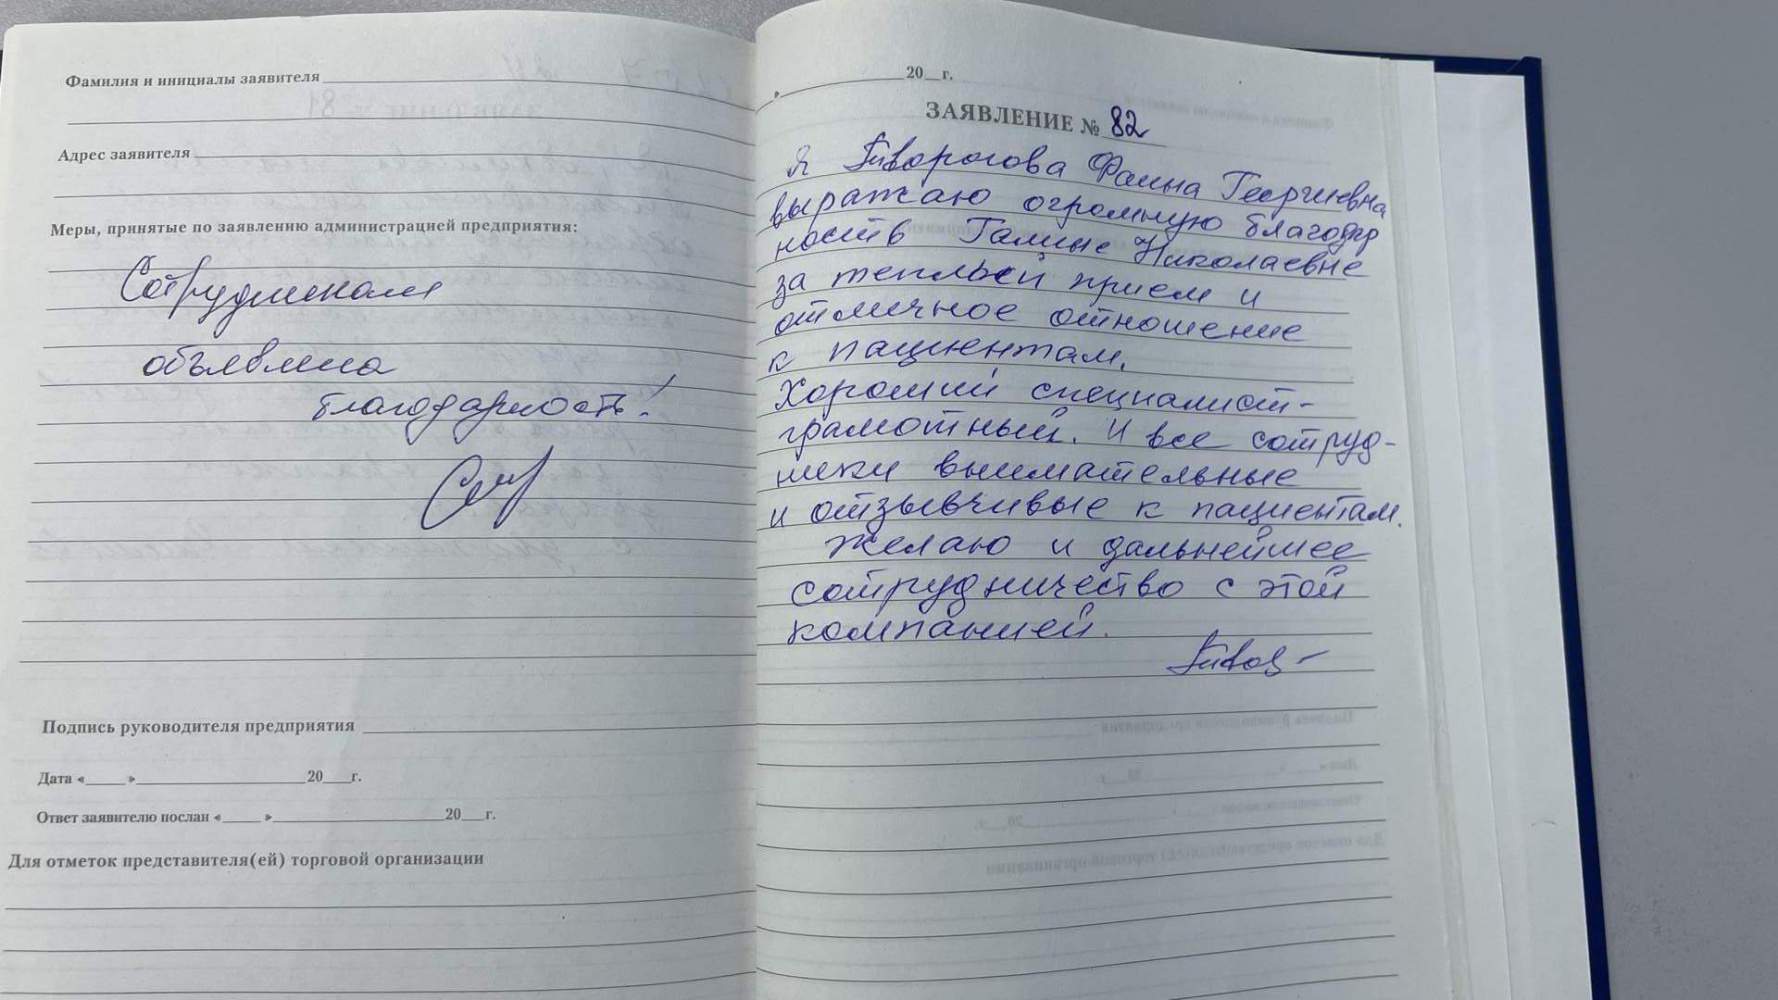 Фамилия и инициалы заявителя
Адрес заявителя
Меры, принятые по заявлению администрацией предприятия:
Сотрудникам
объявлена
благодарность!
Подпись руководителя предприятия
Дата « » 20 г.
Ответ заявителю послан « » 20 г.
Для отметок представителя(ей) торговой организации
» 20 г.
ЗАЯВЛЕНИЕ № 82
Я Фаина Георгиевна
выражаю огромную благодар
ность Галине Николаевне
за теплый прием и
отличное отношение
к пациентам.
Хороший специалист-
грамотный. И все сотруд-
ники внимательные
и отзывчивые к пациентам.
Желаю и дальнейшее
сотрудничество с этой
компанией.